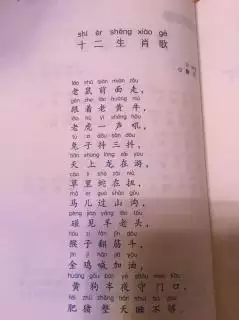 shí èr shēng xiào gē
十二生肖歌
lǎo shǔ qián miàn zǒu
老鼠前面走，
gēn zhe lǎo huáng niú
跟着老黄牛，
lǎo hǔ yì shēng hǒu
老虎一声吼，
tù zi dǒu sān dǒu
兔子抖三抖，
tiān shàng lóng zài yóu
天上龙在游，
cǎo lǐ shé zài niǔ
草里蛇在扭，
mǎ ér guò shān gōu
马儿过山沟，
pèng jiàn yáng lǎo tóu
碰见羊老头，
hóu zi fān jīn dǒu
猴子翻筋斗，
jīn jī hǎn jiā yóu
金鸡喊加油，
huáng gǒu bàn yè shǒu mén kǒu
黄狗半夜守门口，
féi zhū zhěng tiān shuì bú gòu
肥猪整天睡不够，